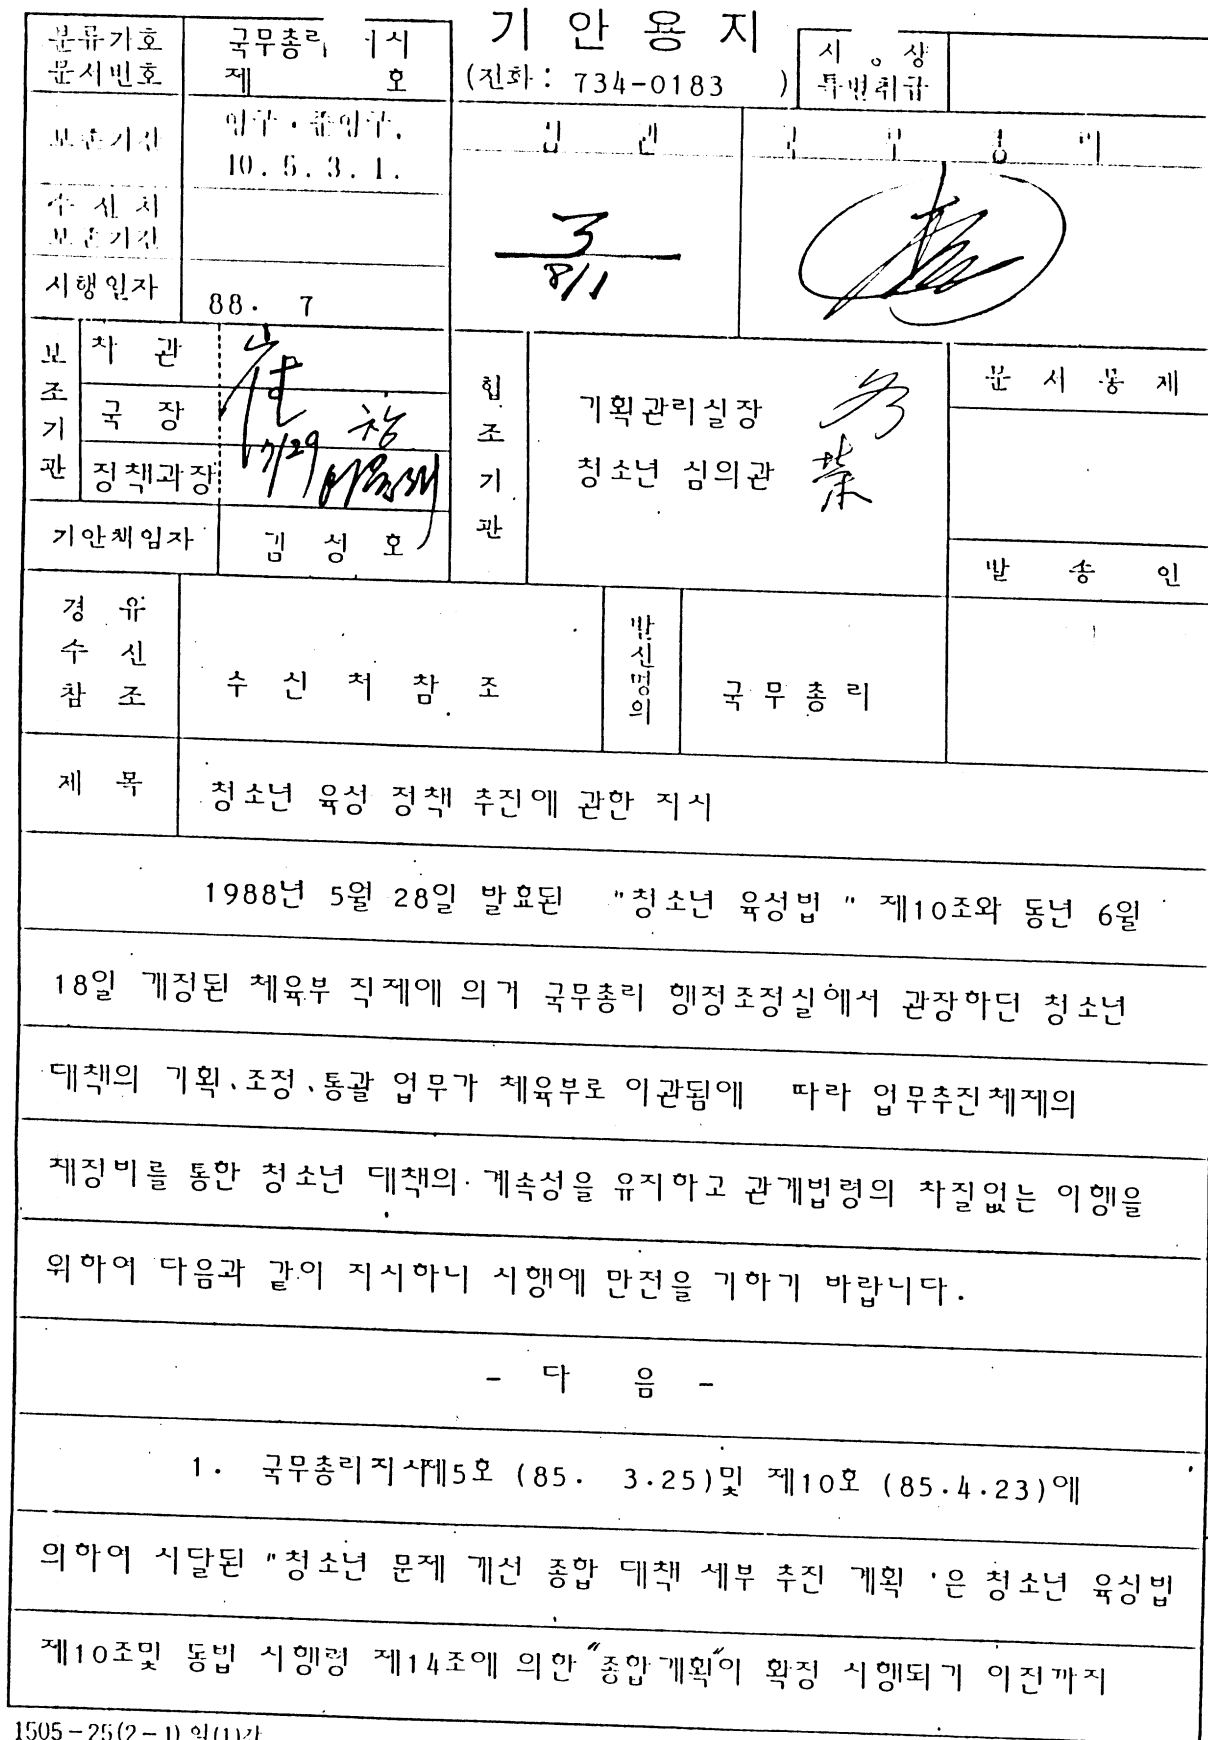 기안용지
분류기호
문서번호
국무총리 지시
제 호
(전화 : 734-0183 )
시 상
특별취급
보존기간
영구 · 준영구.
10. 5. 3. 1.
장 관
국 무 총 리
수 신 처
보존기간
3
8/1
시행일자
88. 7
보조기관
차 관
崔
국 장
정책과장
7/29
협조기관
기획관리실장
청소년 심의관
문 서 통 제
기안책임자
김 성 호
발 송 인
경 유
수 신
참 조
수 신 처 참 조
발신명의
국 무 총 리
제 목
청소년 육성 정책 추진에 관한 지시
1988년 5월 28일 발효된 "청소년 육성법 " 제10조와 동년 6월
18일 개정된 체육부 직제에 의거 국무총리 행정조정실에서 관장하던 청소년
대책의 기획、조정、통괄 업무가 체육부로 이관됨에 따라 업무추진체제의
재정비를 통한 청소년 대책의 계속성을 유지하고 관계법령의 차질없는 이행을
위하여 다음과 같이 지시하니 시행에 만전을 기하기 바랍니다.
- 다 음 -
1. 국무총리지시제5호 (85. 3.25)및 제10호 (85.4.23)에
의하여 시달된 "청소년 문제 개선 종합 대책 세부 추진 계획 '은 청소년 육성법
제10조및 동법 시행령 제14조에 의한 "종합계획"이 확정 시행되기 이전까지
1505-25(2-1) 일(1)갑